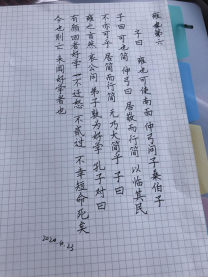 雍也第六
子曰 雍也可使南面 仲弓问子桑伯子
子曰可也简 仲弓曰 居敬而行简 以临其民
不亦可乎 居简而行简 无乃大简乎 子曰
雍之言然 哀公问 弟子孰为好学 孔子对曰
有颜回者好学 不迁怒 不贰过 不幸短命死矣
今也则亡 未闻好学者也